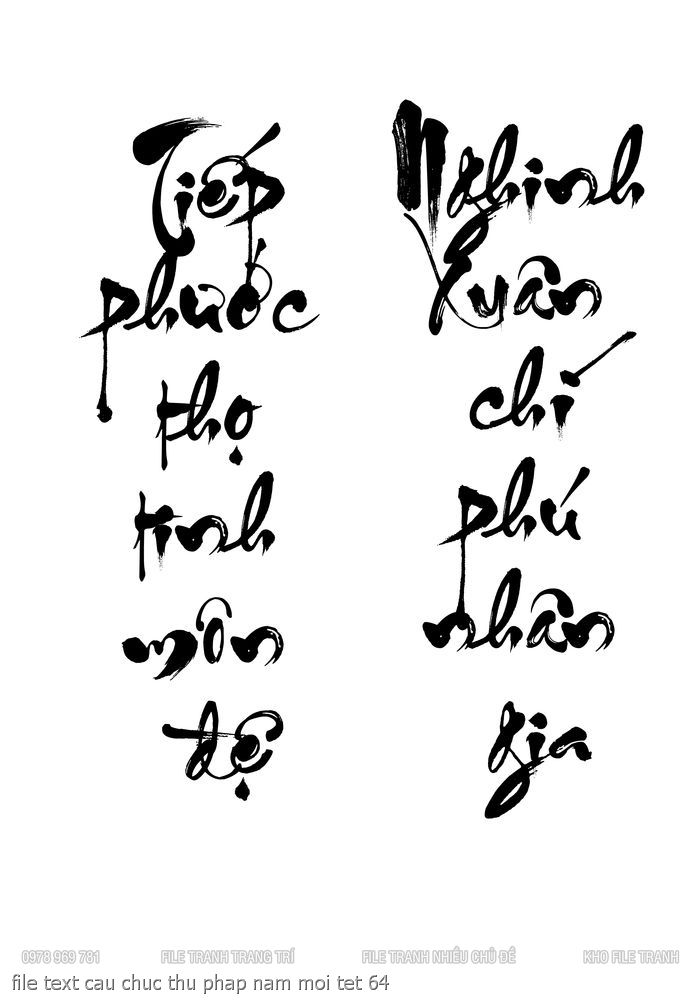 Tiếp
phước
thọ
tinh
môn
đệ
Nghinh
Xuân
chí
phú
nhân
gia
0978 969 781 FILE TRANH TRANG TRÍ FILE TRANH NHIỀU CHỦ ĐỀ KHO FILE TRANH
file text cau chuc thu phap nam moi tet 64